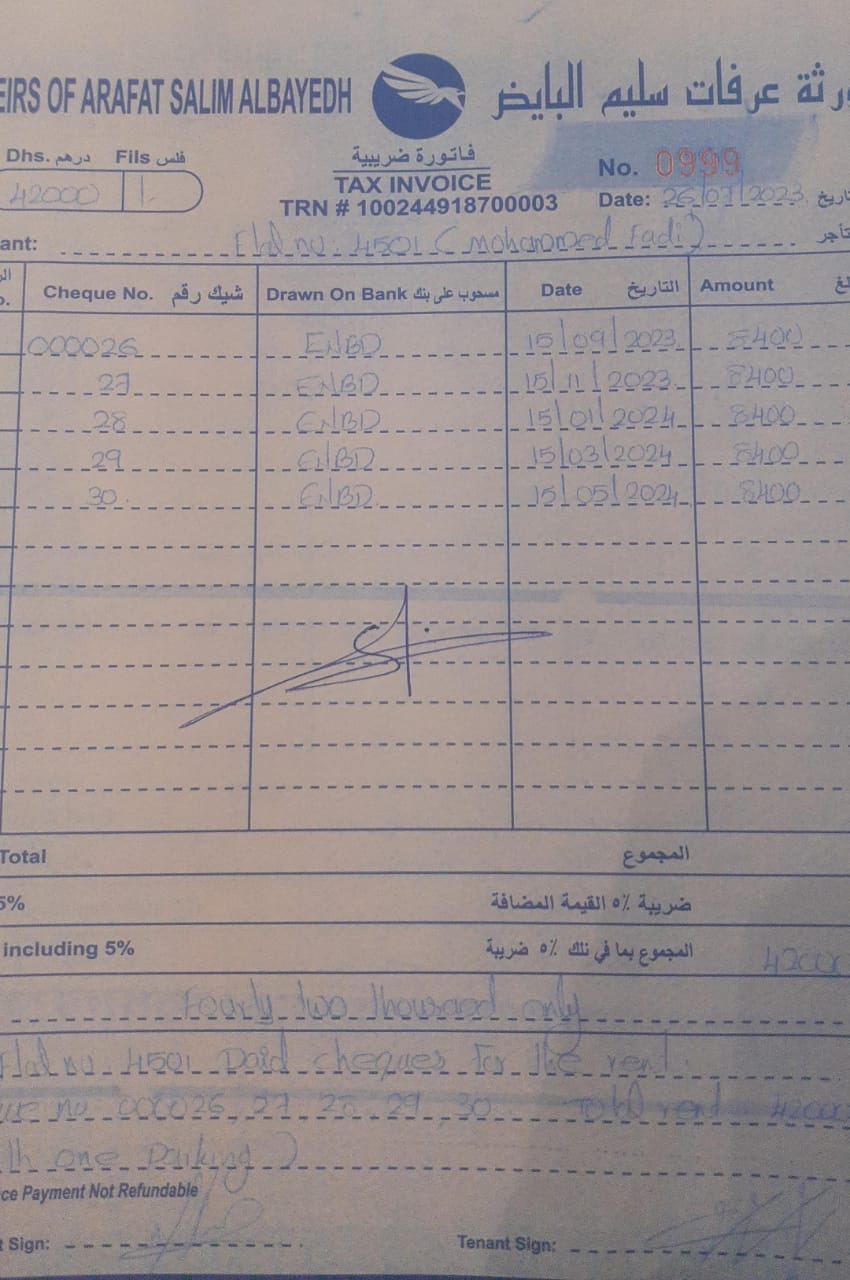 EIRS OF ARAFAT SALIM ALBAYEDH ورثة عرفات سليم البايض
Dhs. درهم Fils فلس
42000
فاتورة ضريبية
TAX INVOICE
TRN # 100244918700003
No. 0999
Date: 26/07/2023
ant: Flat no: 4501 (Mohammed Fadi)
Cheque No. شيك رقم Drawn On Bank مسحوب على بنك Date التاريخ Amount
000026 ENBD 15/09/2023 8400
27 ENBD 15/11/2023 8400
28 ENBD 15/01/2024 8400
29 ENBD 15/03/2024 8400
30. ENBD 15/05/2024 8400
Total المجموع
5% ضريبة ٥٪ القيمة المضافة
including 5% المجموع بما في ذلك ٥٪ ضريبة 42000
Fourty two thousand only
Flat no 4501 Paid cheques for the rent.
no 000026, 27, 28, 29, 30 Total rent 42000
th one Parking)
ce Payment Not Refundable
Sign: Tenant Sign: